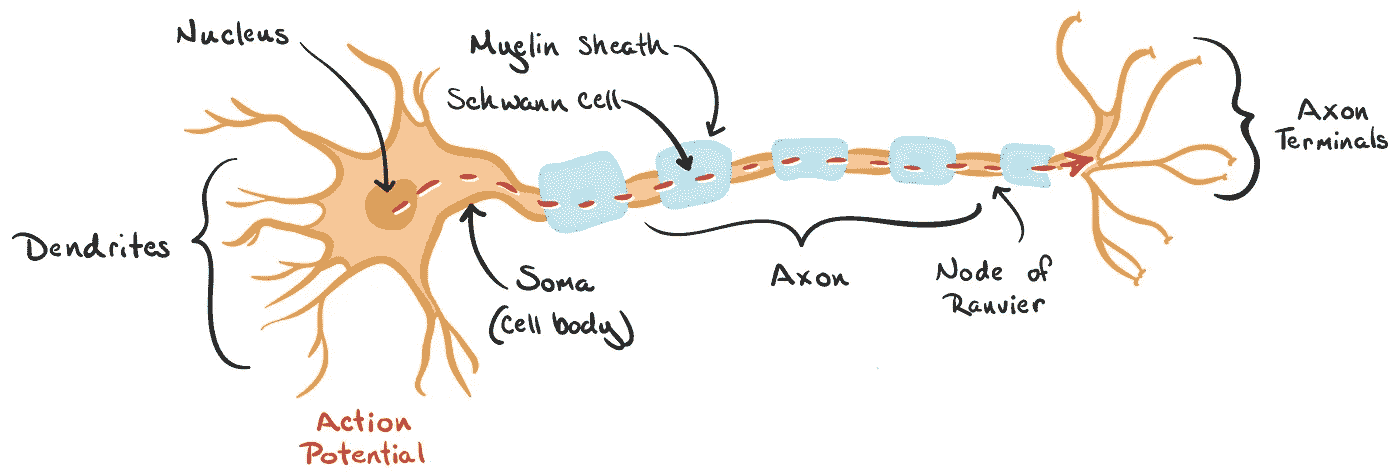 Nucleus
Myelin Sheath
Schwann Cell
Axon
Terminals
Dendrites
Soma
(cell body)
Axon
Node of
Ranvier
Action
Potential